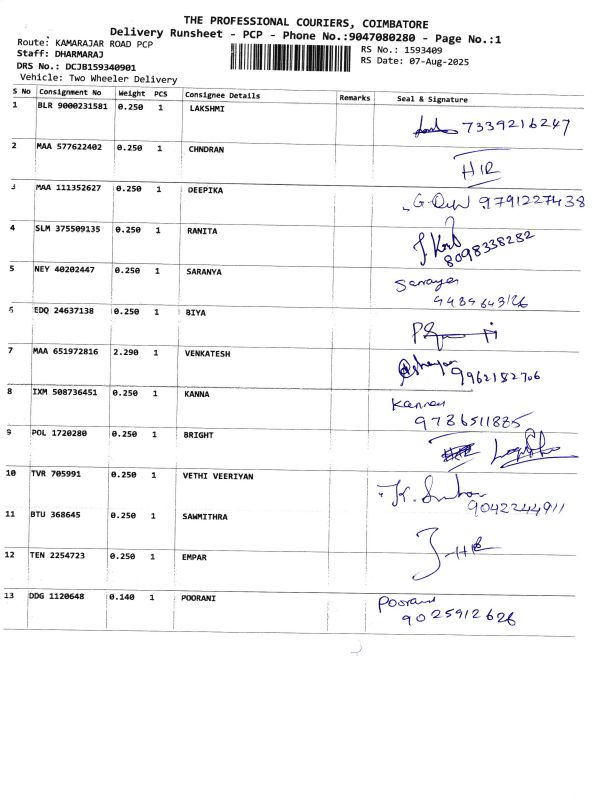 THE PROFESSIONAL COURIERS, COIMBATORE
Delivery Runsheet - PCP - Phone No.:9047080280 - Page No.:1
Route: KAMARAJAR ROAD PCP
Staff: DHARMARAJ
DRS No.: DCJB159340901
Vehicle: Two Wheeler Delivery
RS No.: 1593409
RS Date: 07-Aug-2025
S No Consignment No Weight PCS Consignee Details Remarks Seal & Signature
1 BLR 9000231581 0.250 1 LAKSHMI 7339216247
2 MAA 577622402 0.250 1 CHNDRAN HIR
3 MAA 111352627 0.250 1 DEEPIKA 9791227438
4 SLM 375509135 0.250 1 RANITA 8098338282
5 NEY 40202447 0.250 1 SARANYA Saranya
6 EDQ 24637138 0.250 1 BIYA
7 MAA 651972816 2.290 1 VENKATESH 9962152706
8 IXM 508736451 0.250 1 KANNA Kannan
9786511885
9 POL 1720280 0.250 1 BRIGHT
10 TVR 705991 0.250 1 VETHI VEERIYAN
9042244911
11 BTU 368645 0.250 1 SAWMITHRA
12 TEN 2254723 0.250 1 EMPAR
13 DDG 1120648 0.140 1 POORANI Poorani
9025912626